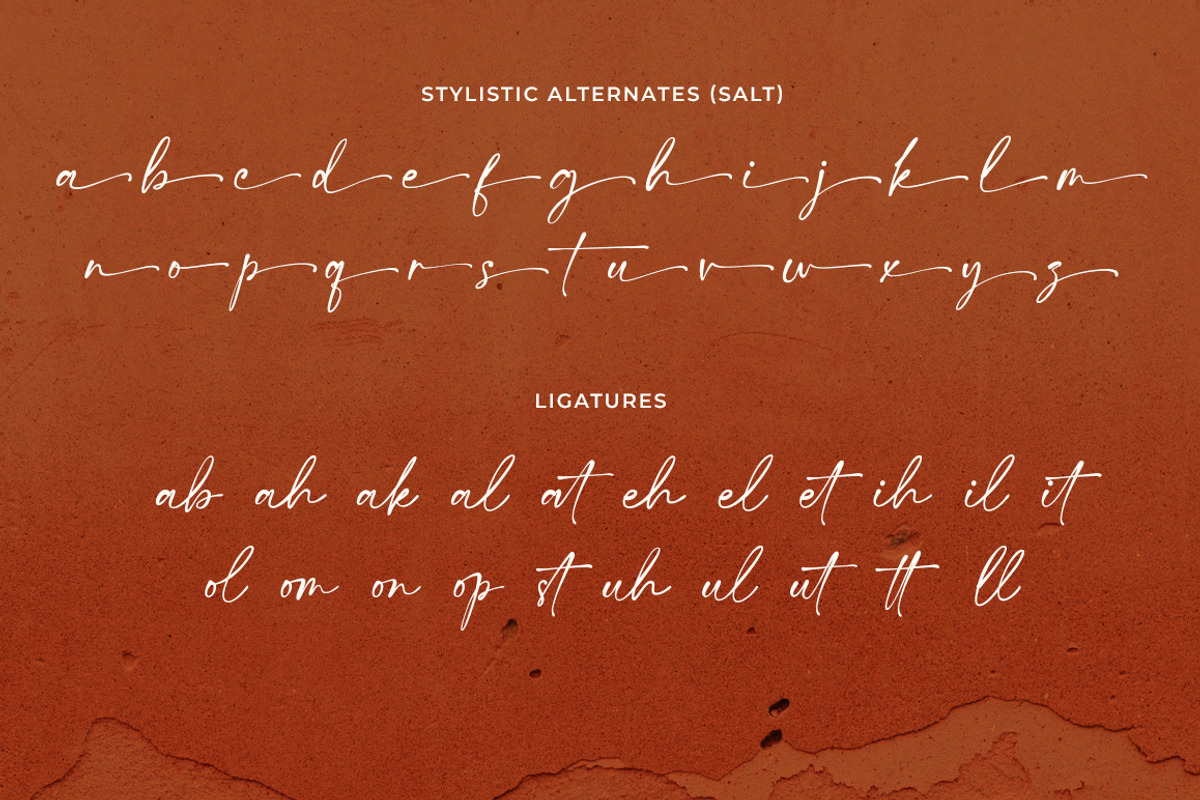 STYLISTIC ALTERNATES (SALT)
a b c d e f g h i j k l m
n o p q r s t u v w x y z
LIGATURES
ab ah ak al at eh el et ih il it
ol om on op st uh ul ut tt ll